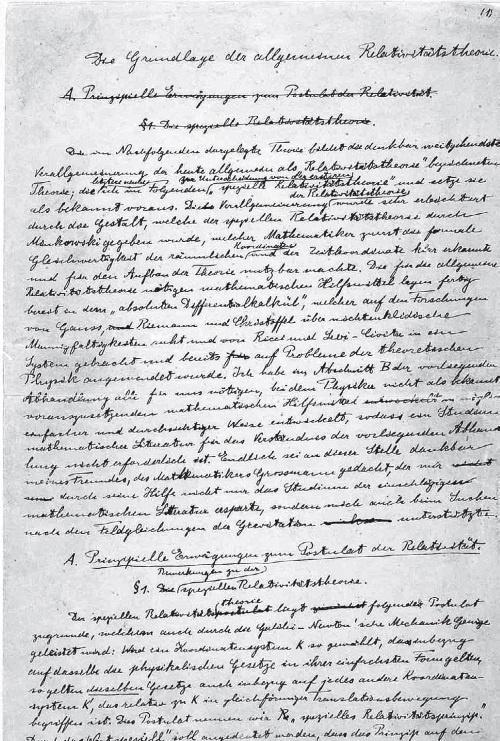 (1)
Die Grundlage der allgemeinen Relativitätstheorie.
A. Prinzipielle Erwägungen zum Postulat der Relativität.
§1. Die spezielle Relativitätstheorie.
Die im Nachfolgenden dargelegte Theorie bildet die denkbar weitgehendste
Verallgemeinerung der heute allgemein als "Relativitätstheorie" bezeichneten
zur Unterscheidung von der ersteren
Theorie; die ich im Folgenden "spezielle Relativitätstheorie" und setze sie
der Relativitätstheorie
als bekannt voraus. Die Verallgemeinerung wurde sehr erleichtert
durch die Gestalt, welche der speziellen Relativitätstheorie durch
Minkowski gegeben wurde, welcher Mathematiker zuerst die formale
Koordinaten
Gleichwertigkeit der räumlichen und der Zeitkoordinate klar erkannte
und für den Aufbau der Theorie nutzbar machte. Die für die allgemeine
Relativitätstheorie nötigen mathematischen Hilfsmittel lagen fertig
bereit in dem "absoluten Differentialkalkül", welcher auf den Forschungen
von Gauss, und Riemann und Christoffel über nichteuklidische
Mannigfaltigkeiten ruht und von Ricci und Levi-Civita in ein
System gebracht und bereits auf Probleme der theoretischen
Physik angewendet wurde. Ich habe im Abschnitt B der vorliegenden
Abhandlung alle für uns nötigen, bei dem Physiker nicht als bekannt
vorauszusetzenden mathematischen Hilfsmittel entwickelt in
einfacher und durchsichtiger Weise entwickelt, sodass ein Studium
mathematischer Literatur für das Verständnis der vorliegenden Abhand-
lung nicht erforderlich ist. Endlich sei an dieser Stelle dankbar
meines Freundes, des Mathematikers Grossmann gedacht, der mir
durch seine Hilfe nicht nur das Studium der einschlägigen
mathematischen Literatur ersparte, sondern mich auch beim Suchen
nach den Feldgleichungen der Gravitation unterstützte.
A. Prinzipielle Erwägungen zum Postulat der Relativität.
Bemerkungen zu der
§1. Die speziellen Relativitätstheorie.
theorie
Der speziellen Relativitätspostulat liegt folgendes Postulat
zugrunde, welchem auch durch die Galilei-Newton'sche Mechanik Genüge
geleistet wird: Wird ein Koordinatensystem K so gewählt, dass inbezug
auf dasselbe die physikalischen Gesetze in ihrer einfachsten Form gelten,
so gelten dieselben Gesetze auch inbezug auf jedes andere Koordinaten-
system K', das relativ zu K in gleichförmiger Translationsbewegung
begriffen ist. Dies Postulat nennen wir "spezielles Relativitätsprinzip".
"speziell" soll angedeutet werden, dass das Prinzip auf den